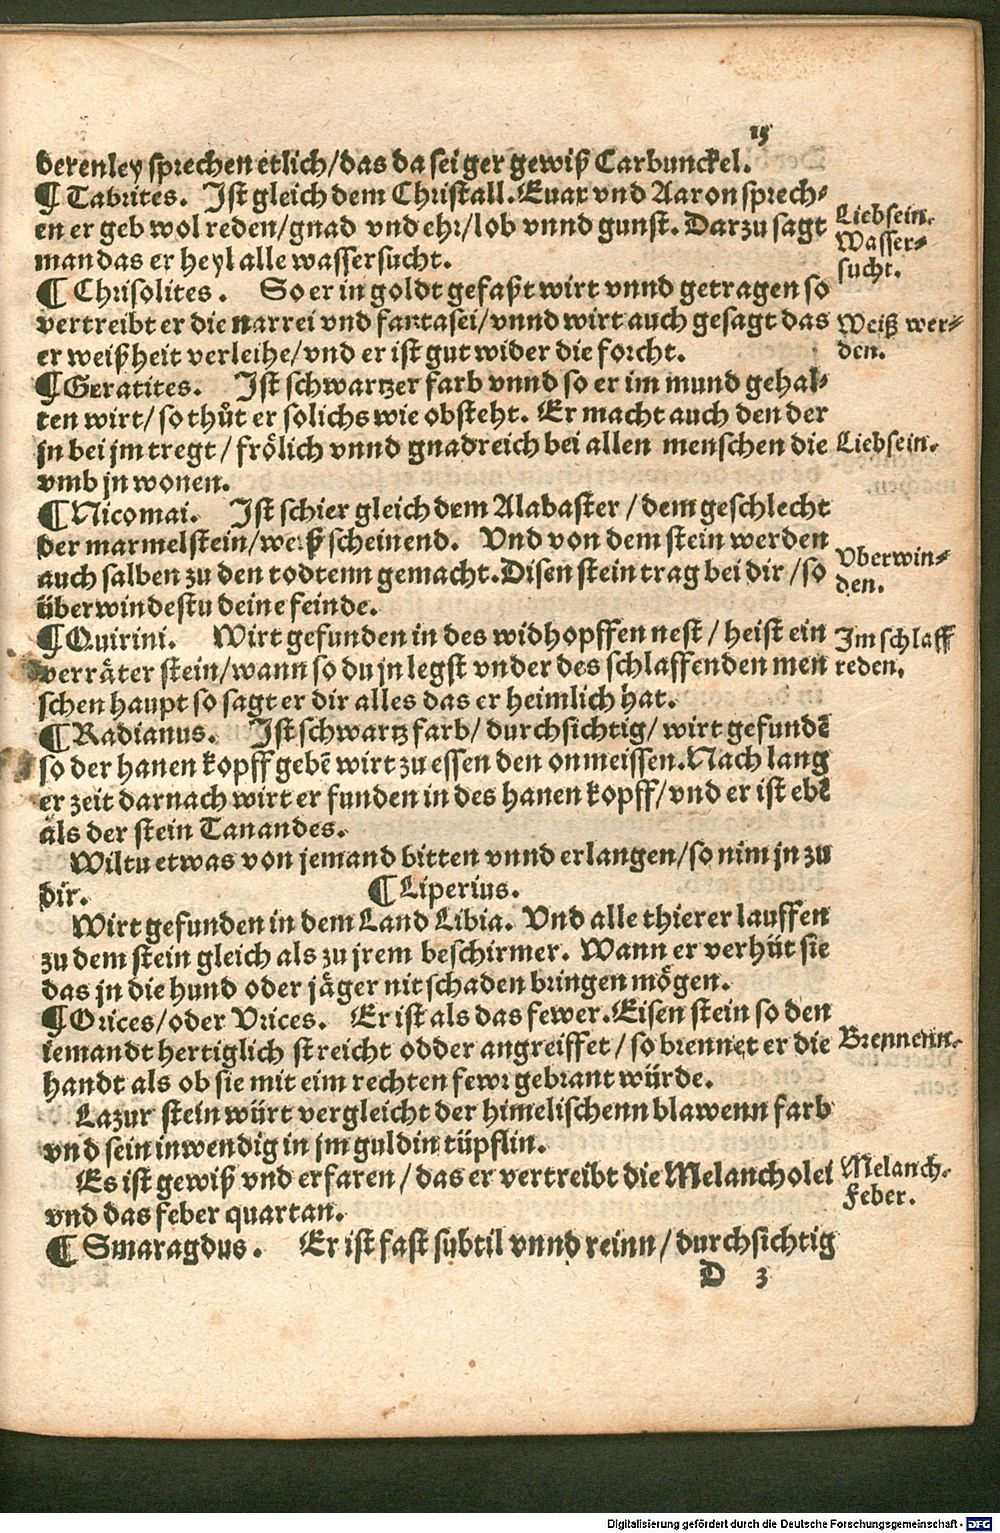 15
derenley sprechen etlich/das da sei ger gewiß Carbunckel.
¶ Tabrites. Ist gleich dem Christall. Euax vnd Aaron sprech⸗
en er geb wol reden/gnad vnd ehr/lob vnnd gunst. Darzu sagt
man das er heyl alle wassersucht.
Liebsein.
Wasser⸗
sucht.
¶ Chrisolites. So er in goldt gefaßt wirt vnnd getragen so
vertreibt er die narrei vnd fantasei/vnnd wirt auch gesagt das
er weißheit verleihe/vnd er ist gut wider die forcht.
Weiß wer⸗
den.
¶ Geratites. Ist schwartzer farb vnnd so er im mund gehal⸗
ten wirt/so thůt er solichs wie obsteht. Er macht auch den der
jn bei jm tregt/frölich vnnd gnadreich bei allen menschen die
vmb jn wonen.
Liebsein.
¶ Nicomai. Ist schier gleich dem Alabaster/dem geschlecht
der marmelstein/weiß scheinend. Vnd von dem stein werden
auch salben zu den todtenn gemacht. Disen stein trag bei dir/so
überwindestu deine feinde.
Vberwin⸗
den.
¶ Quirini. Wirt gefunden in des widhopffen nest/heist ein
verräter stein/wann so du jn legst vnder des schlaffenden men
schen haupt so sagt er dir alles das er heimlich hat.
Im schlaff
reden.
¶ Radianus. Ist schwartz farb/durchsichtig/wirt gefundē
so der hanen kopff gebē wirt zu essen den onmeissen. Nach lang
er zeit darnach wirt er funden in des hanen kopff/vnd er ist ebē
als der stein Tanandes.
Wiltu etwas von jemand bitten vnnd erlangen/so nim jn zu
dir. ¶ Liperius.
Wirt gefunden in dem Land Libia. Vnd alle thierer lauffen
zu dem stein gleich als zu jrem beschirmer. Wann er verhüt sie
das jn die hund oder jäger nit schaden bringen mögen.
¶ Orices/oder Vrices. Er ist als das fewer. Eisen stein so den
iemandt hertiglich streicht odder angreiffet/so brennet er die
handt als ob sie mit eim rechten fewr gebrant würde.
Brennenn.
Lazur stein würt vergleicht der himelischenn blawenn farb
vnd sein inwendig in jm guldin tüpflin.
Es ist gewiß vnd erfaren/das er vertreibt die Melancholei
vnd das feber quartan.
Melanch.
Feber.
¶ Smaragdus. Er ist fast subtil vnnd reinn/durchsichtig
D 3
Digitalisierung gefördert durch die Deutsche Forschungsgemeinschaft - DFG